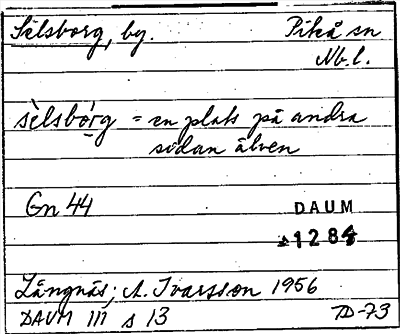 Selsborg, by. Piteå sn
Nb.l.
sèlsbórg = en plats på andra
sidan älven
Gn 44
DAUM
1284
Långnäs; A. Ivarsson 1956
DAUM 111 s 13 TD-73